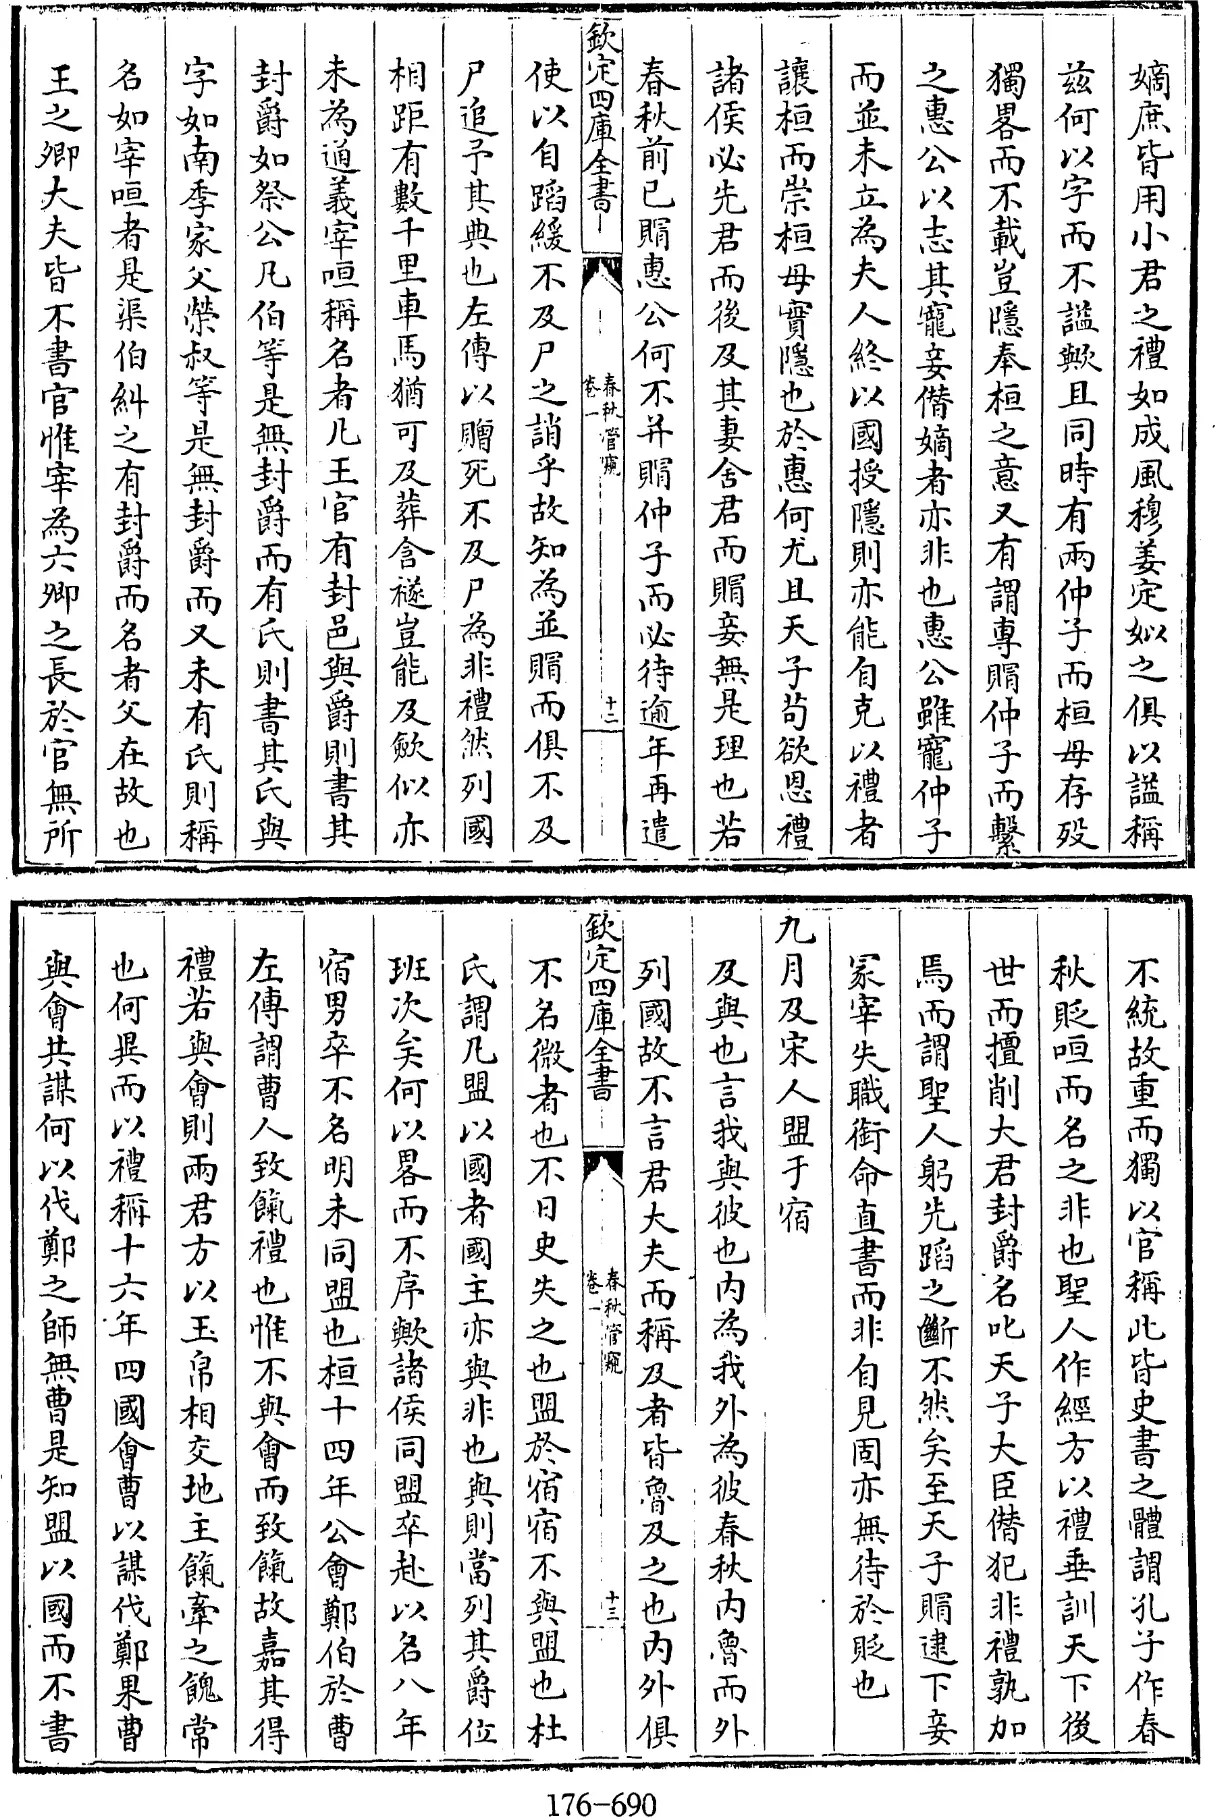 嫡庶皆用小君之禮如成風穆姜定姒之俱以謚稱
兹何以字而不謚歟且同時有兩仲子而桓母存殁
獨畧而不載豈隱奉桓之意又有謂專賵仲子而繫
之惠公以志其寵妾僭嫡者亦非也惠公雖寵仲子
而並未立為夫人終以國授隱則亦能自克以禮者
讓桓而崇桓母實隱也於惠何尤且天子苟欲恩禮
諸侯必先君而後及其妻舍君而賵妾無是理也若
春秋前已賵惠公何不并賵仲子而必待逾年再遣
欽定四庫全書
春秋管窺
卷一
十二
使以自蹈緩不及尸之誚乎故知為並賵而俱不及
尸追予其典也左傳以贈死不及尸為非禮然列國
相距有數千里車馬猶可及葬含襚豈能及歛似亦
未為通義宰咺稱名者凡王官有封邑與爵則書其
封爵如祭公凡伯等是無封爵而有氏則書其氏與
字如南季家父榮叔等是無封爵而又未有氏則稱
名如宰咺者是渠伯糾之有封爵而名者父在故也
王之卿大夫皆不書官惟宰為六卿之長於官無所
不統故重而獨以官稱此皆史書之體謂孔子作春
秋貶咺而名之非也聖人作經方以禮垂訓天下後
世而擅削大君封爵名叱天子大臣僭犯非禮孰加
焉而謂聖人躬先蹈之斷不然矣至天子賵逮下妾
冢宰失職銜命直書而非自見固亦無待於貶也
九月及宋人盟于宿
及與也言我與彼也内為我外為彼春秋内魯而外
列國故不言君大夫而稱及者皆魯及之也内外俱
欽定四庫全書
春秋管窺
卷一
十三
不名微者也不日史失之也盟於宿宿不與盟也杜
氏謂凡盟以國者國主亦與非也與則當列其爵位
班次矣何以畧而不序歟諸侯同盟卒赴以名八年
宿男卒不名明未同盟也桓十四年公會鄭伯於曹
左傳謂曹人致餼禮也惟不與會而致餼故嘉其得
禮若與會則兩君方以玉帛相交地主餼牽之餽常
也何異而以禮稱十六年四國會曹以謀伐鄭果曹
與會共謀何以伐鄭之師無曹是知盟以國而不書
176-690